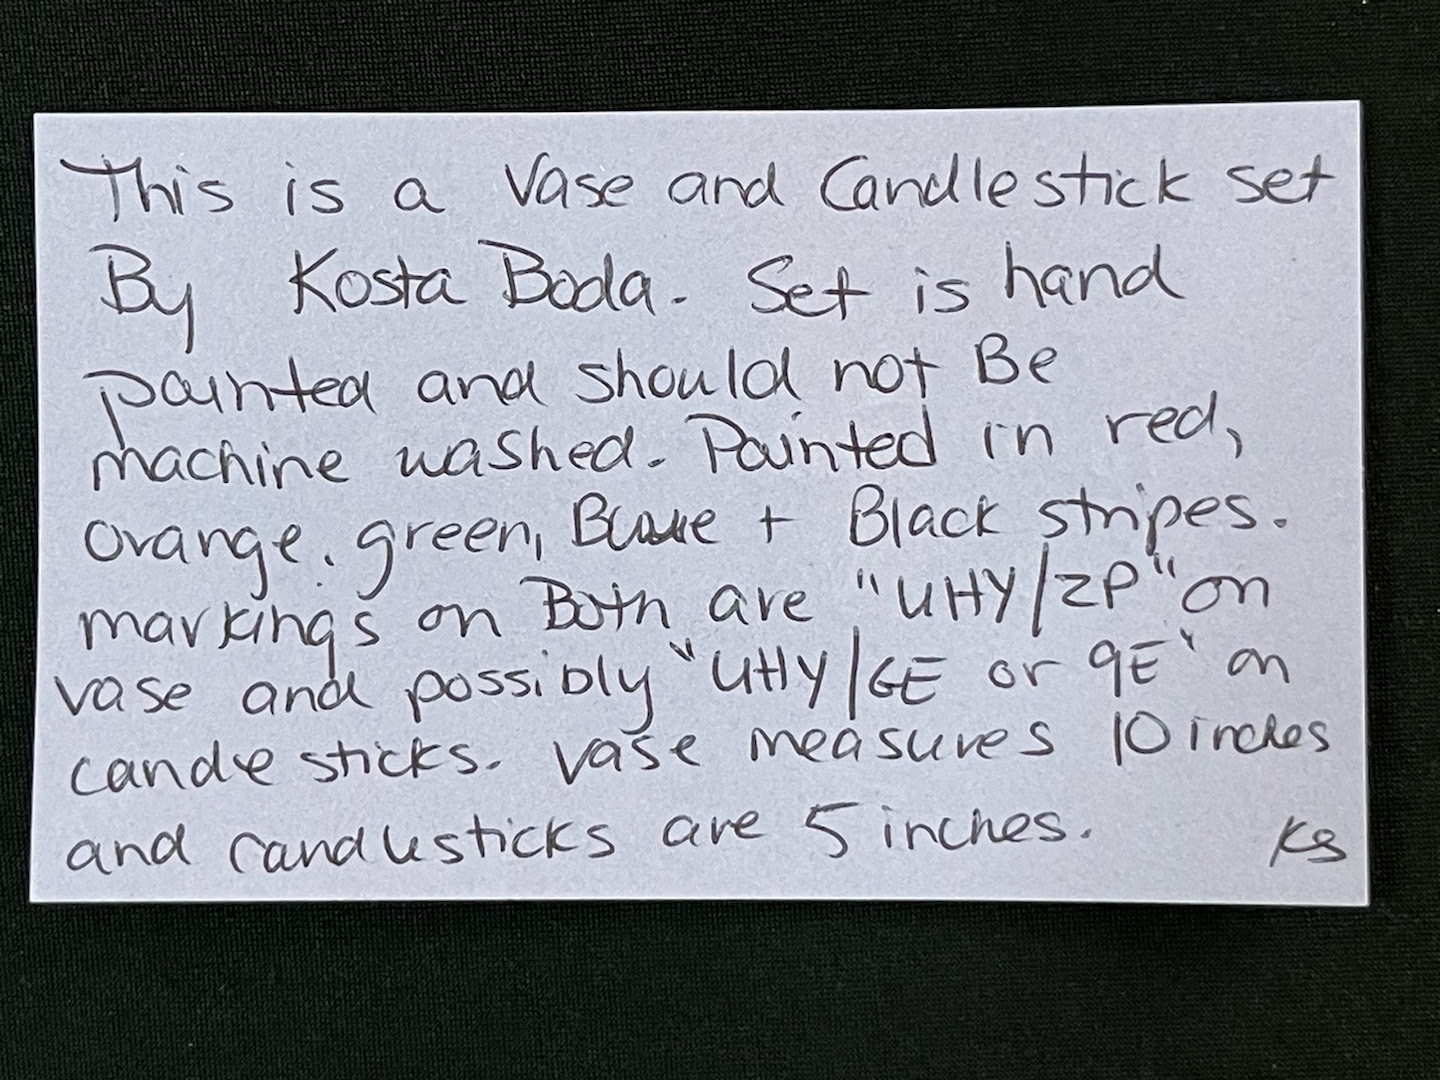 This is a Vase and Candlestick set
By Kosta Boda. Set is hand
painted and should not Be
machine washed. Painted in red,
orange, green, Blue + Black stripes.
markings on Both are "UHY/ZP" on
vase and possibly "UHY/GE or 9E" on
candle sticks. vase measures 10 inches
and candlesticks are 5 inches. KS